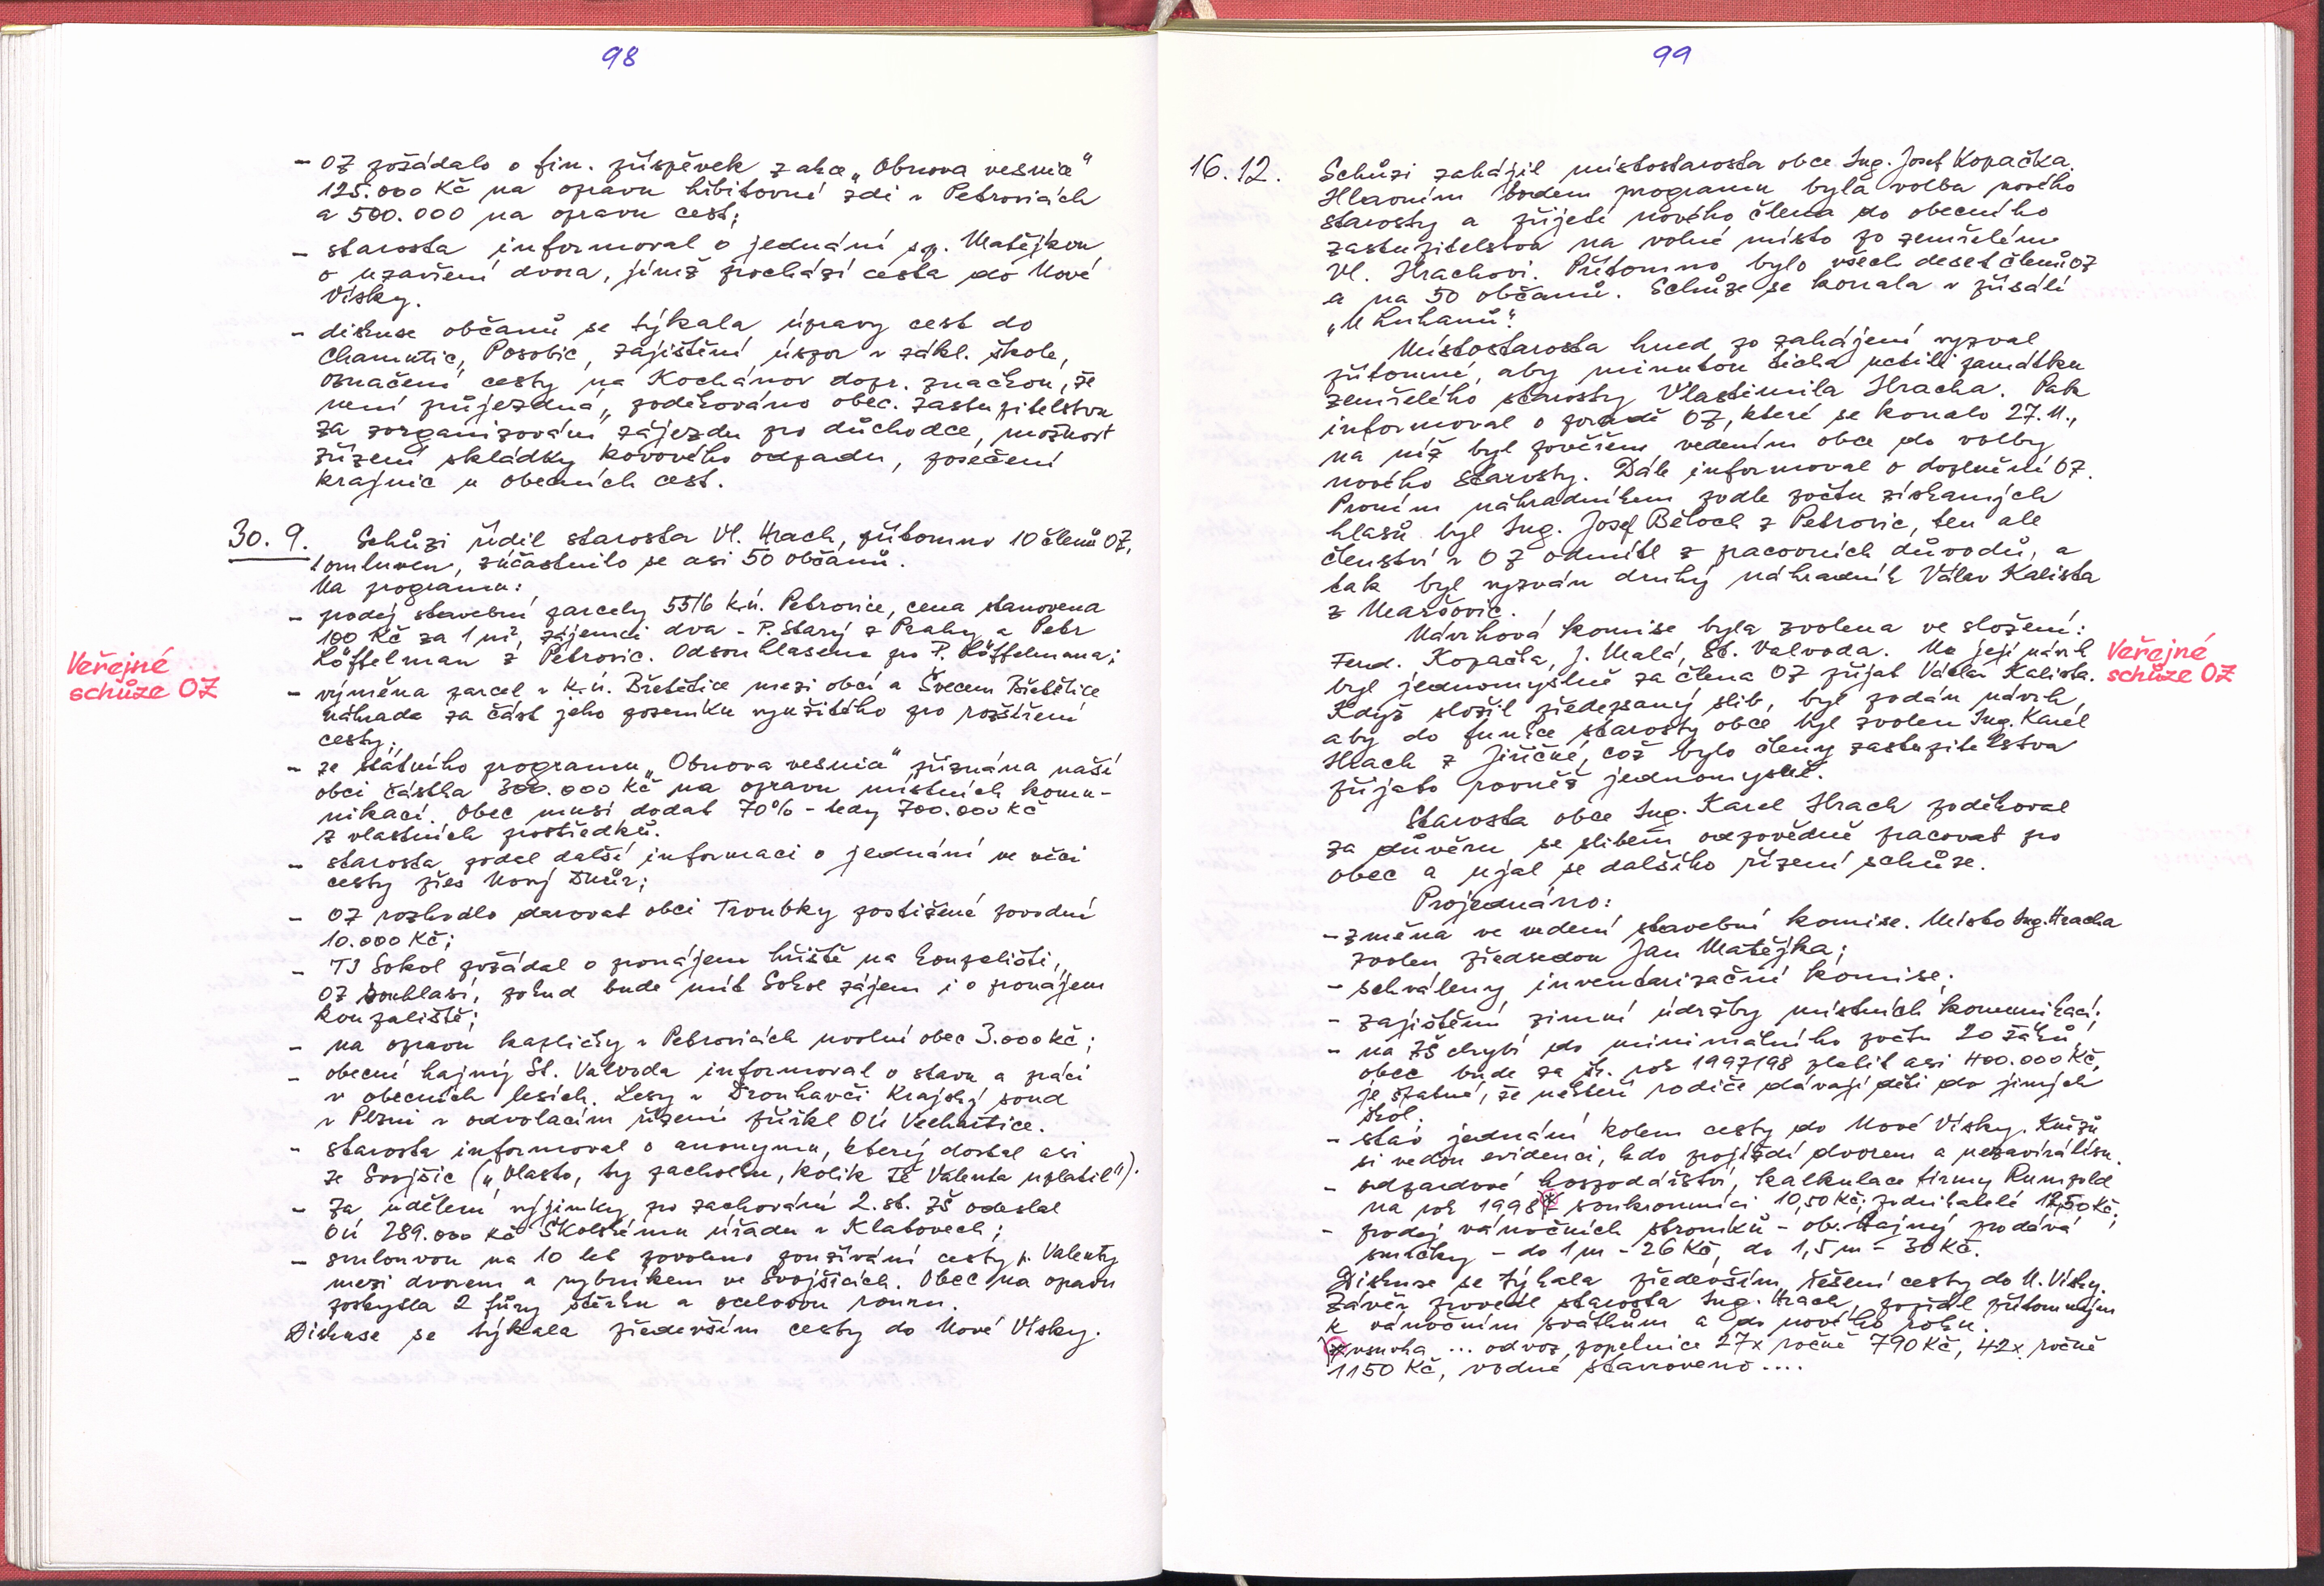 98
- OZ požádalo o fin. příspěvek z akce „Obnova vesnice"
125.000 Kč na opravu hřbitovní zdi v Petrovicích
a 500.000 na opravu cest;
- starosta informoval o jednání s p. Matějkou
o uzavření dvora, jímž prochází cesta do Nové
Vísky.
- diskuse občanů se týkala úpravy cest do
Chamutic, Posobic, zajištění úspor v zákl. škole,
označení cesty na Kochánov dopr. značkou, že
není průjezdná, poděkováno obec. zastupitelstvu
za zorganizování zájezdu pro důchodce, možnost
zřízení skládky kovového odpadu, posečení
krajnic u obecních cest.
Veřejné
schůze OZ
30. 9. Schůzi řídil starosta Vl. Hrach, přítomno 10 členů OZ,
1 omluven, zúčastnilo se asi 50 občanů.
Na programu:
- prodej stavební parcely 55/6 k.ú. Petrovice, cena stanovena
100 Kč za 1 m², zájemci dva - P. Starý z Prahy a Petr
Löffelman z Petrovic. Odsouhlaseno pro P. Löffelmana;
- výměna parcel v k.ú. Břetětice mezi obcí a Švecem Břetětice
náhrada za část jeho pozemku využitého pro rozšíření
cesty;
- ze státního programu „Obnova vesnice" přiznána naší
obci částka 300.000 Kč na opravu místních komu-
nikací. Obec musí dodat 70% - tedy 700.000 Kč
z vlastních prostředků.
- starosta podal další informaci o jednání ve věci
cesty přes Nový Dvůr;
- OZ rozhodlo darovat obci Troubky postižené povodní
10.000 Kč;
- TJ Sokol požádal o pronájem hřiště na koupališti,
OZ souhlasí, pokud bude mít Sokol zájem i o pronájem
koupaliště;
- na opravu kapličky v Petrovicích uvolní obec 3.000 Kč;
- obecní hajný St. Valvoda informoval o stavu a práci
v obecních lesích. Lesy v Trouhavči Krajský soud
v Plzni v odvolacím řízení přiřkl OÚ Velhartice.
- starosta informoval o anonymu, který dostal asi
ze Svojšic („Vlasto, ty pacholku, kolik Tě Valenta uplatil").
- za udělení výjimky pro zachování 2. st. ZŠ odeslal
OÚ 289.000 Kč Školskému úřadu v Klatovech;
- smlouvou na 10 let povoleno používání cesty p. Valenty
mezi dvorem a rybníkem ve Svojšicích. Obec na opravu
poskytla 2 fůry štěrku a ocelovou rouru.
Diskuse se týkala především cesty do Nové Vísky.
99
16. 12. Schůzi zahájil místostarosta obce Ing. Josef Kopačka.
Hlavním bodem programu byla volba nového
starosty a přijetí nového člena do obecního
zastupitelstva na volné místo po zemřelému
Vl. Hrachovi. Přítomno bylo všech deset členů OZ
a na 50 občanů. Schůze se konala v přísálí
„U Luhanů".
Místostarosta hned po zahájení vyzval
přítomné, aby minutou ticha uctili památku
zemřelého starosty Vlastimila Hracha. Pak
informoval o poradě OZ, které se konalo 27.11.,
na níž byl pověřen vedením obce do volby
nového starosty. Dále informoval o doplnění OZ.
Prvním náhradníkem podle počtu získaných
hlasů byl Ing. Josef Běloch z Petrovic, ten ale
členství v OZ odmítl z pracovních důvodů, a
tak byl vyzván druhý náhradník Válav Kalista
z Maršovic.
Návrhová komise byla zvolena ve složení:
Ferd. Kopačka, J. Malá, St. Valvoda. Na její návrh
byl jednomyslně za člena OZ přijat Václav Kalista.
Veřejné
schůze OZ
Když složil předepsaný slib, byl podán návrh,
aby do funkce starosty obce byl zvolen Ing. Karel
Hrach z Jiřičné, což bylo členy zastupitelstva
přijato rovněž jednomyslně.
Starosta obce Ing. Karel Hrach poděkoval
za důvěru se slibem odpovědně pracovat pro
obec a ujal se dalšího řízení schůze.
Projednáno:
- změna ve vedení stavební komise. Místo Ing. Hracha
zvolen předsedou Jan Matějka;
- schváleny inventarizační komise;
- zajištění zimní údržby místních komunikací;
- na ZŠ chybí do minimálního počtu 20 žáků,
obec bude za šk. rok 1997/98 platit asi 400.000 Kč,
je špatné, že někteří rodiče dávají děti do jiných
škol.
- stav jednání kolem cesty do Nové Vísky. Knížů
si vedou evidenci, kdo projíždí dvorem a nezavírá lísu.
- odpadové hospodářství, kalkulace firmy Rumpold
na rok 1998 * soukromníci 10,50 Kč, podnikatelé 12,50 Kč;
- prodej vánočních stromků - ob. hajný prodává
smrčky - do 1 m - 26 Kč, do 1,5 m - 30 Kč.
Diskuse se týkala především řešení cesty do N. Vísky.
Závěr provedl starosta Ing. Hrach, popřál přítomným
k vánočním svátkům a do nového roku.
* ... odvoz popelnice 27x ročně 790 Kč, 42x ročně
1150 Kč, vodné stanoveno ....